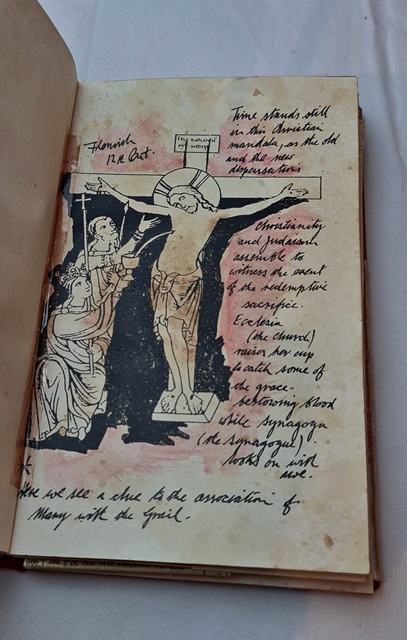 Time stands still
in this Christian
mandala, as the old
and the new
dispensations
Flemish
12th Cent.
Christianity
and Judaism
assemble to
witness the event
of the redemptive
sacrifice.
Ecclesia
(the Church)
raises her cup
to catch some of
the grace-
bestowing blood
while Synagoga
(the Synagogue)
looks on with
awe.
* Here we see a clue to the association of
Mary with the Grail.